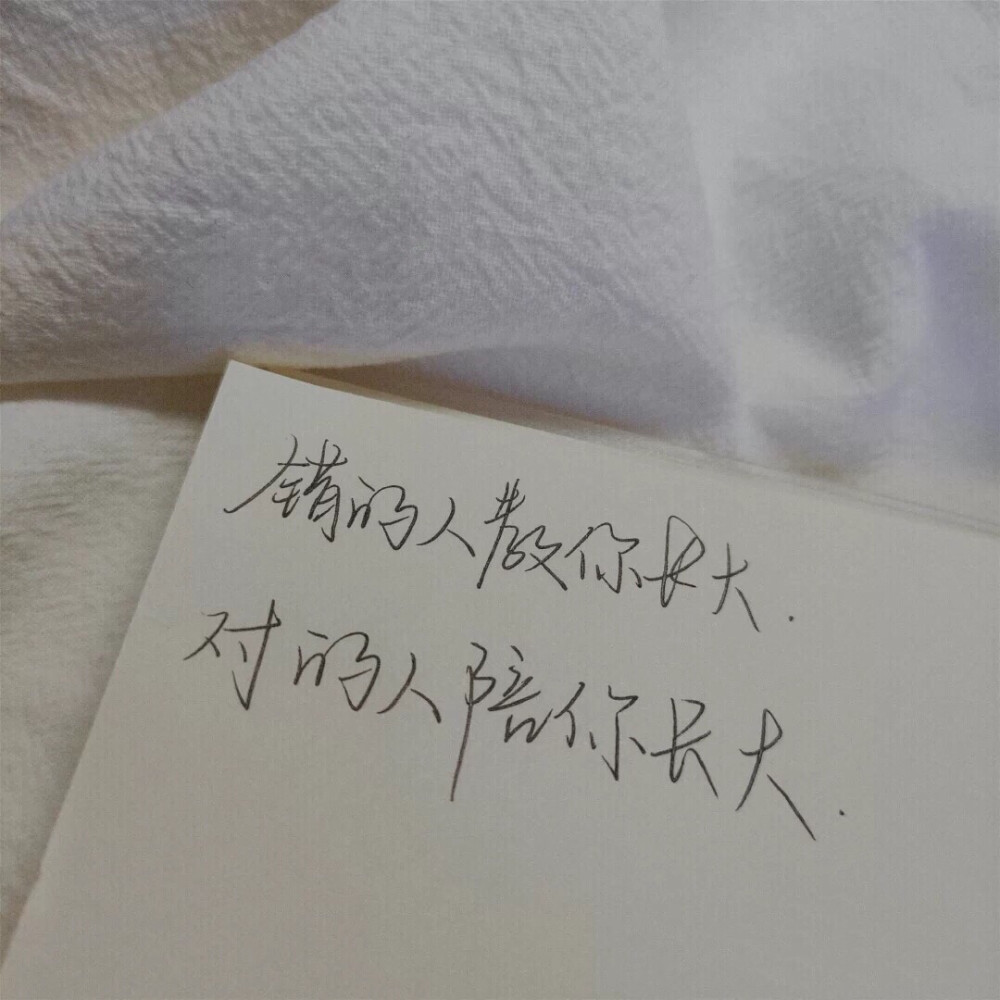 错的人教你长大.
对的人陪你长大.